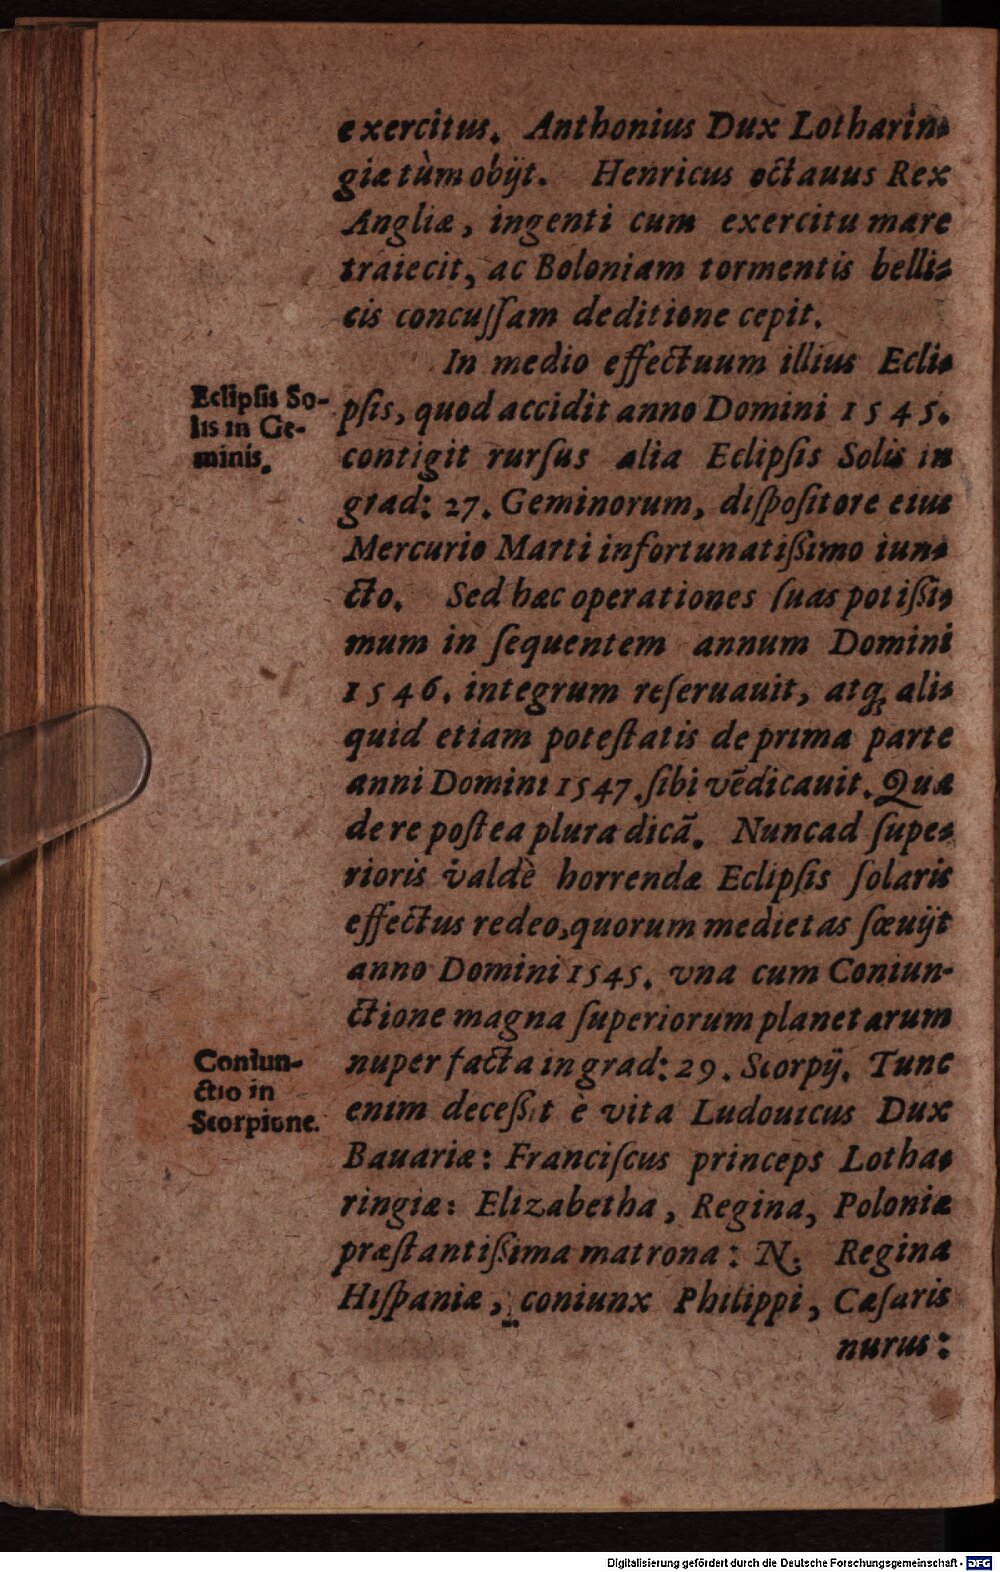 exercitus. Anthonius Dux Lotharin-
giæ tùm obijt. Henricus octauus Rex
Angliæ, ingenti cum exercitu mare
traiecit, ac Boloniam tormentis belli-
cis concuſſam deditione cepit.
In medio effectuum illius Ecli-
Eclipſis So-
lis in Ge-
minis.
pſis, quod accidit anno Domini 1545.
contigit rurſus alia Eclipſis Solis in
grad: 27. Geminorum, diſpoſitore eius
Mercurio Marti infortunatißimo iun-
cto. Sed hæc operationes ſuas potißi-
mum in ſequentem annum Domini
1546. integrum reſeruauit, atq; ali-
quid etiam poteſtatis de prima parte
anni Domini 1547. ſibi vẽdicauit. Qua
de re poſtea plura dicã. Nunc ad ſupe-
rioris valdè horrendæ Eclipſis ſolaris
effectus redeo, quorum medietas ſæuijt
anno Domini 1545. vna cum Coniun-
ctione magna ſuperiorum planetarum
Coniun-
ctio in
Scorpione.
nuper facta in grad: 29. Scorpij. Tunc
enim deceßit è vita Ludouicus Dux
Bauariæ: Franciſcus princeps Lotha-
ringiæ: Elizabetha, Regina, Poloniæ
præſtantißima matrona: N. Regina
Hiſpaniæ, coniunx Philippi, Cæſaris
nurus:
Digitalisierung gefördert durch die Deutsche Forschungsgemeinschaft - DFG